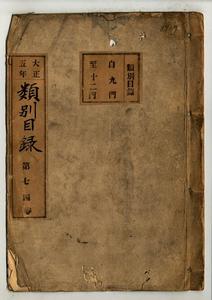 類別目録
自九門
至十二門
大正五年
類別目録
第七四